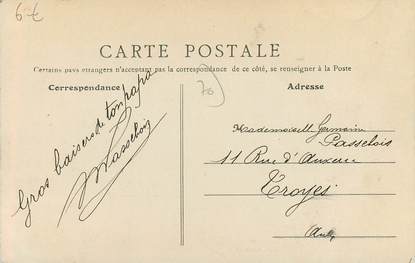 6-€
CARTE POSTALE
Certains pays étrangers n'acceptant pas la correspondance de ce côté, se renseigner à la Poste
Correspondance
Adresse
70
Gros baisers de ton papa
Mademoiselle Germaine
Passelois
11 Rue d'Auxerre
Troyes
Aube